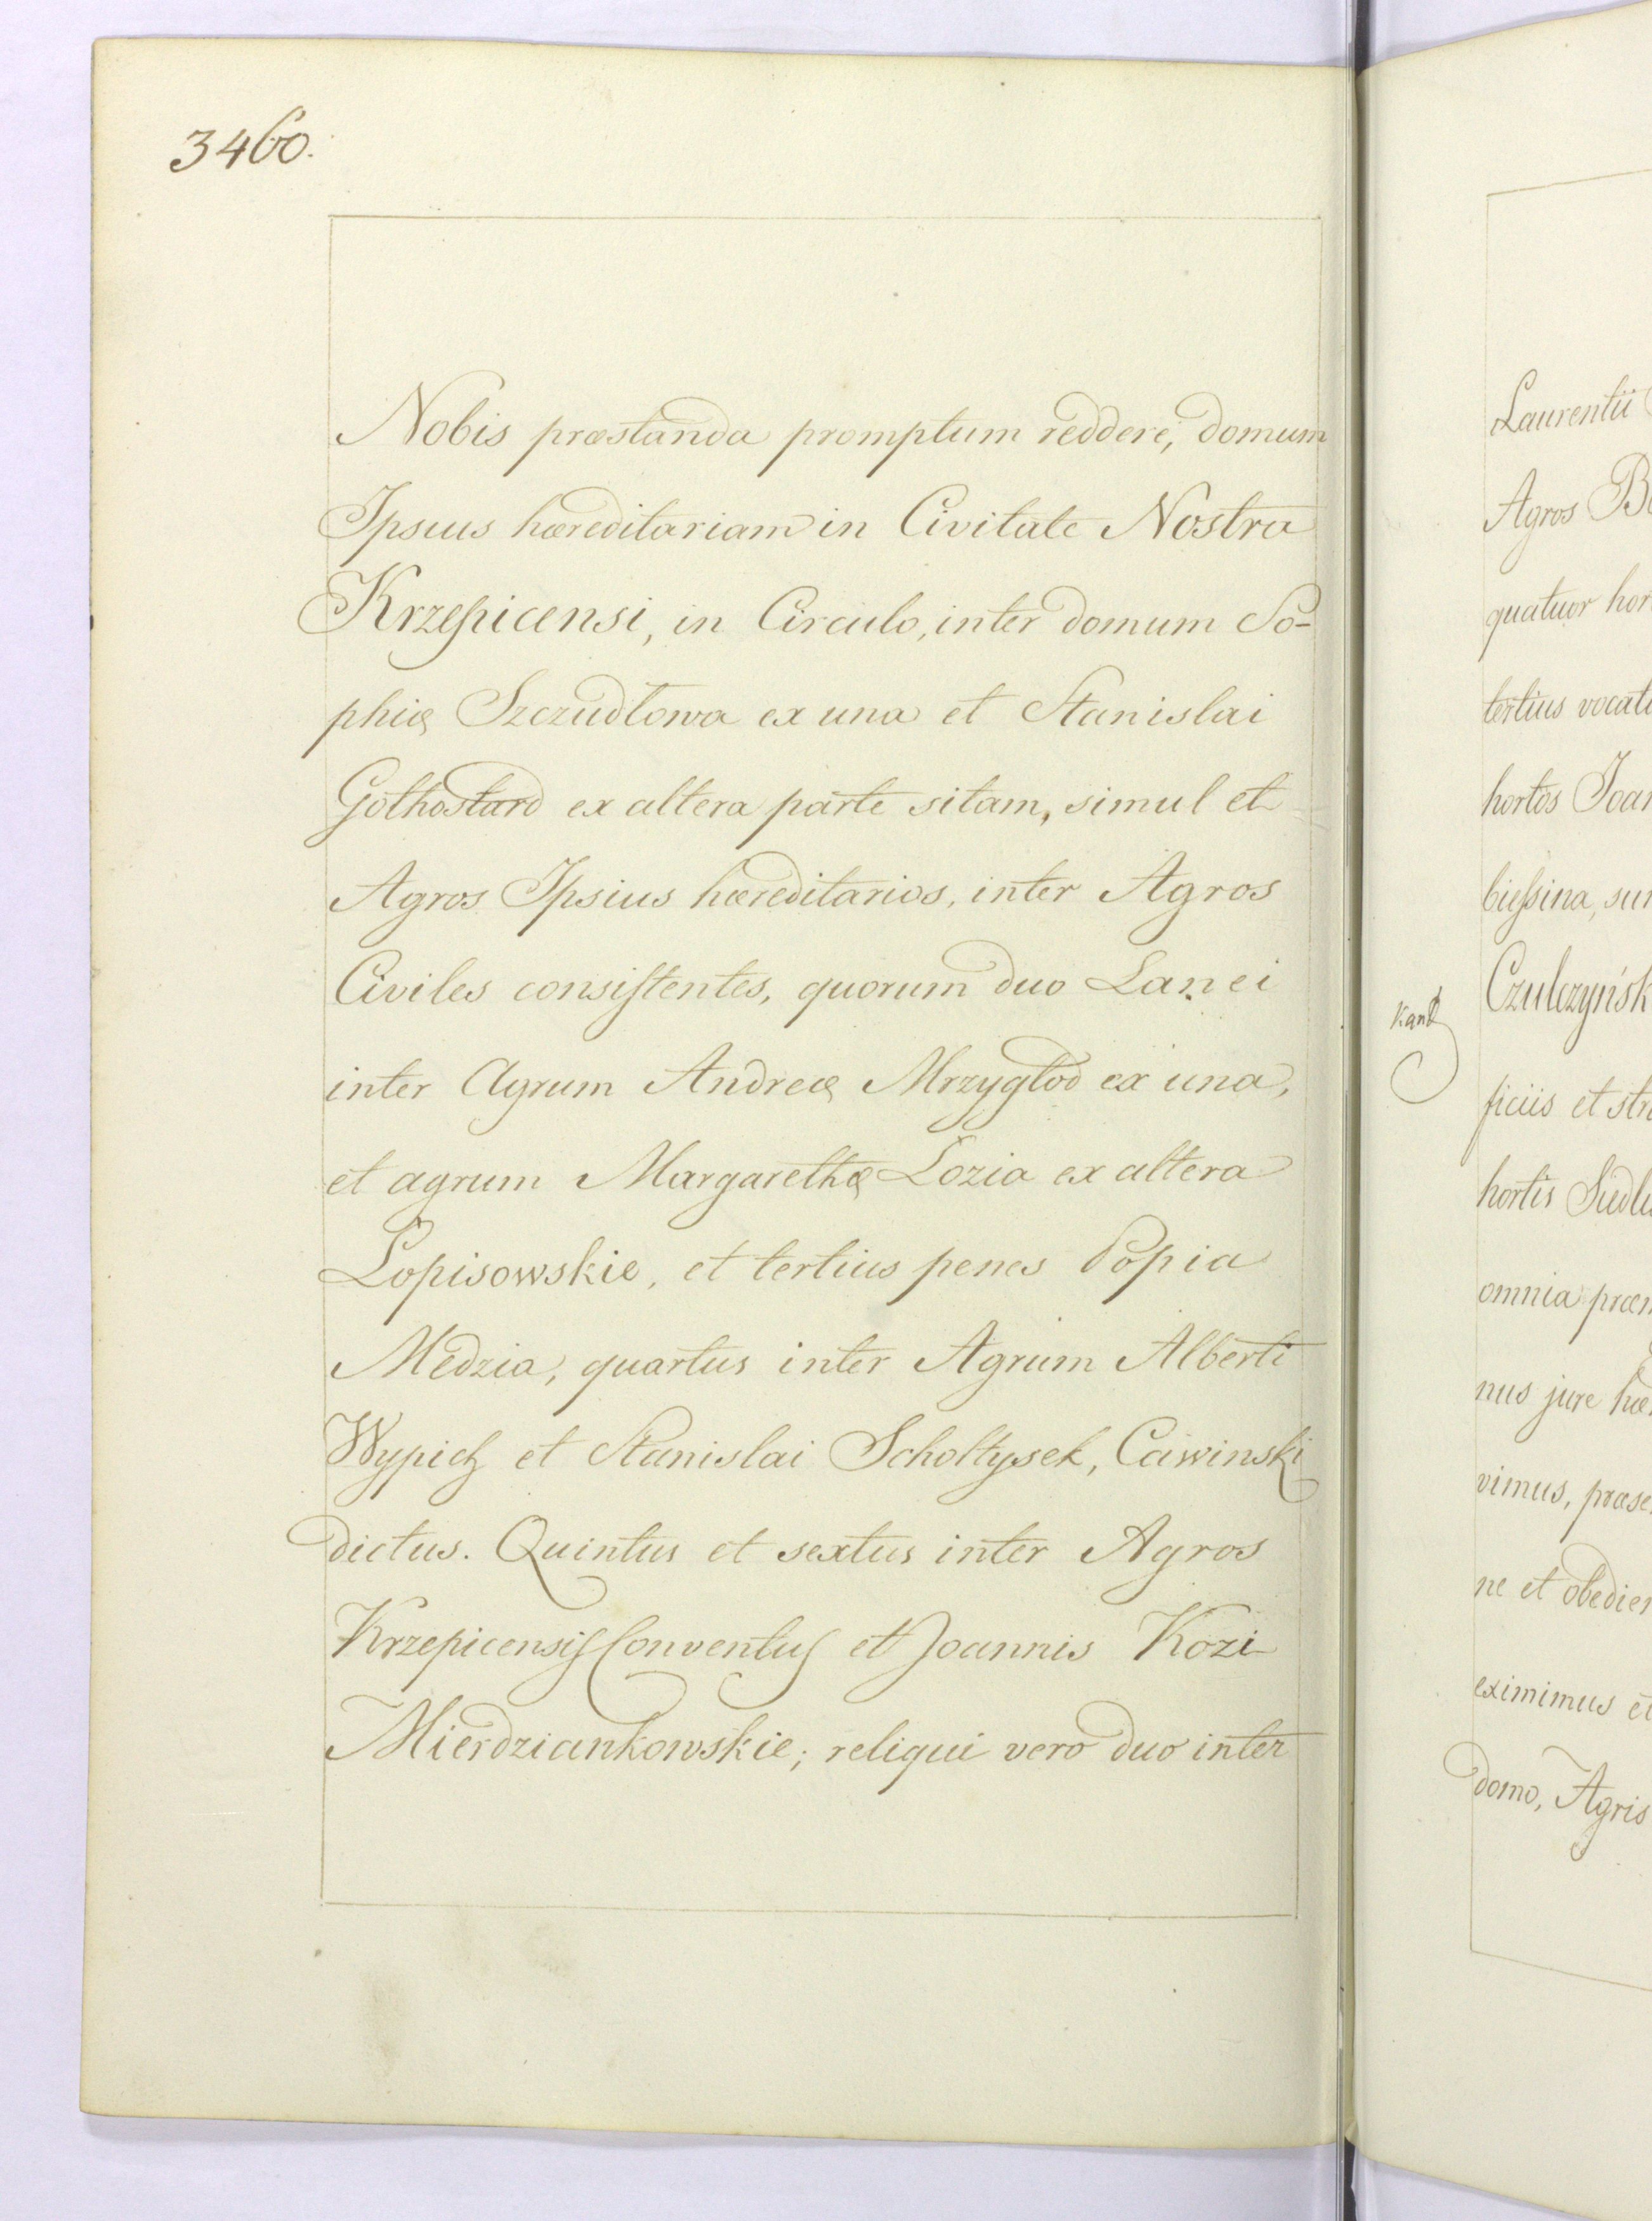 3460.
Nobis præstanda promptum reddere, domum
Ipsius hæreditariam in Civitate Nostra
Krzepicensi, in Circulo, inter domum So-
phiæ Szczudłowa ex una et Stanislai
Golhostard ex altera parte sitam, simul et
Agros Ipsius hæreditarios, inter Agros
Civiles consistentes, quorum duo Lanei
inter Agrum Andreæ Mrzygłod ex una,
et agrum Margarethæ Lozia ex altera
Lopisowskie, et tertius penes Popia
Medzia, quartus inter Agrum Alberti
Wypich et Stanislai Scholtysek, Cawinski
dictus. Quintus et sextus inter Agros
Krzepicensis Conventus et Joannis Kozi
Mierdziankowskie; reliqui vero duo inter
Laurentii
Agros
quatuor
tertius
hortos
biessina,
ficiis et
hortis
omnia
nus jure
vimus,
ne et
eximimus et
domo, Agris